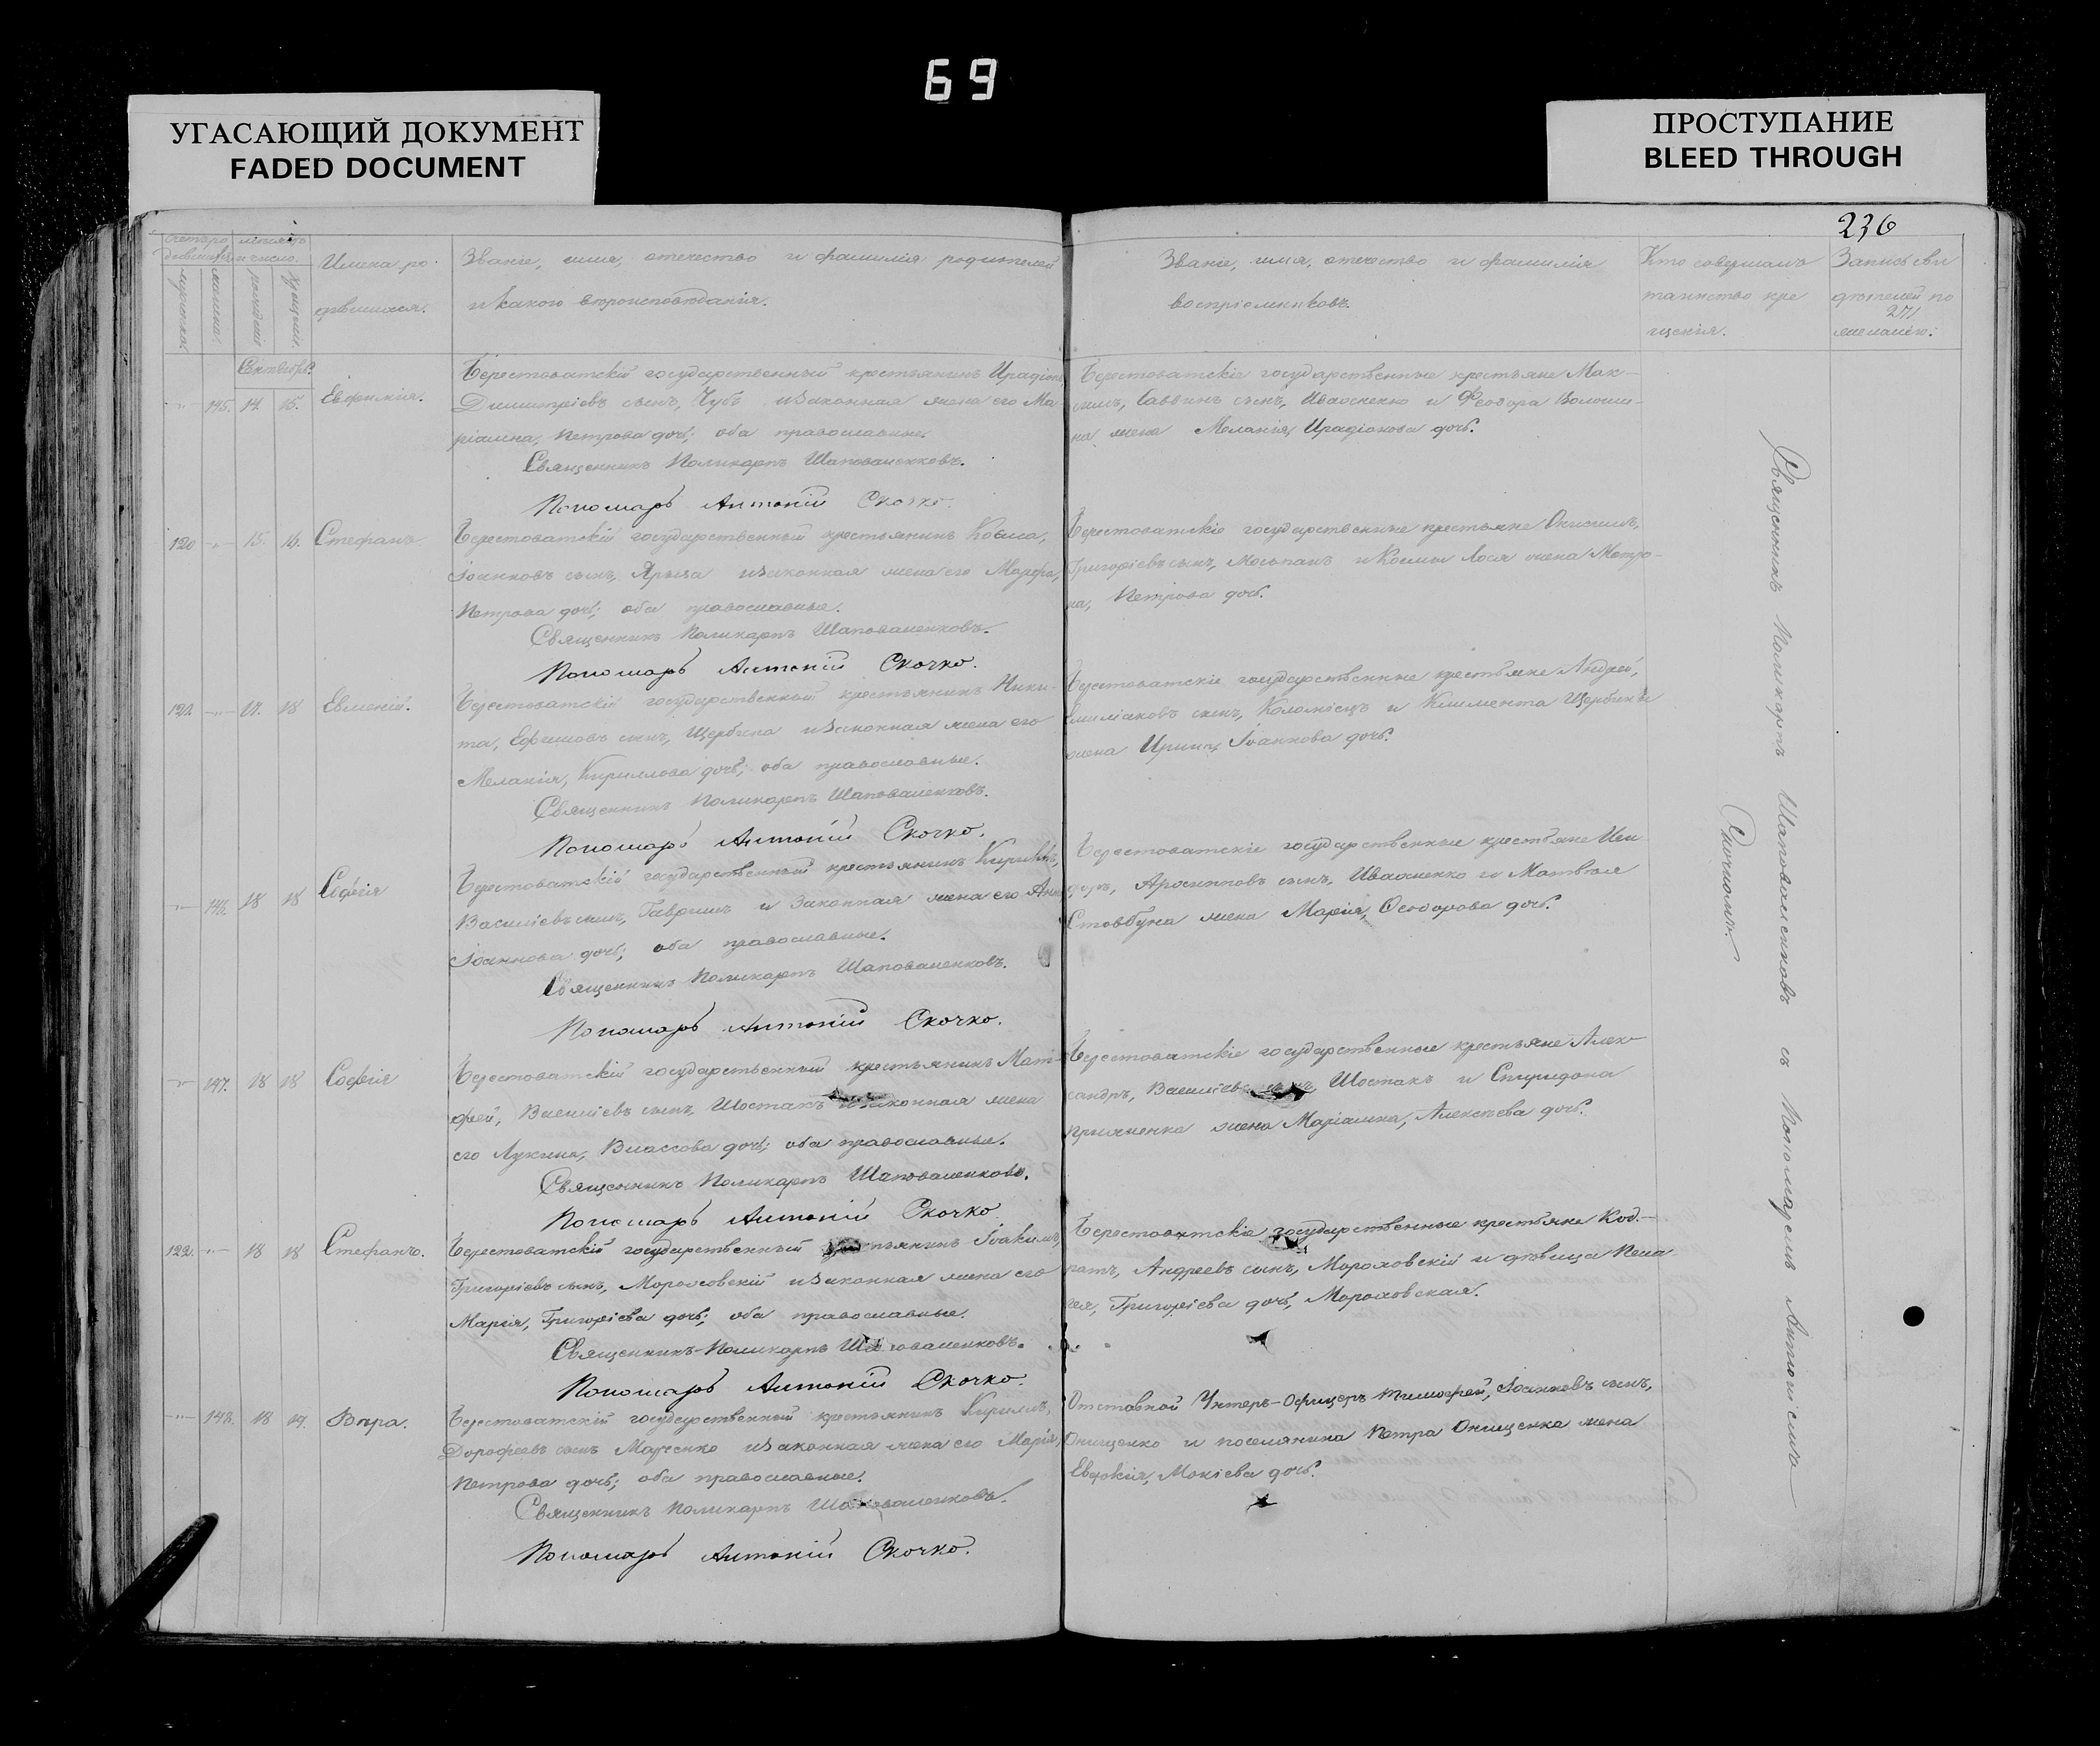 69
УГАСАЮЩИЙ ДОКУМЕНТ
FADED DOCUMENT
ПРОСТУПАНИЕ
BLEED THROUGH
236
Счетъ ро
дившихся
мѣсяцъ
и число.
мужеска.
женска.
рожденія
крещенія.
Имена ро
дившихся.
Званіе, имя, отечество и фамилія родителей
и какого вѣроисповѣданія.
Званіе, имя, отечество и фамилія
воспріемниковъ.
Кто совершалъ
таинство кре
щенія.
Запись сви
дѣтелей по
271
желанію:
Сентябрь.
145. 14. 15. Евфимія.
Берестоватскій государственный крестьянинъ Иродіонъ,
Димитріевъ сынъ, Чубъ и законная жена его Ма-
ріамна, Петрова дочь; оба православные.
Священникъ Поликарпъ Шаповаленковъ.
Пономарь Антоній Скочко.
Берестоватскіе государственные крестьяне Мак-
симъ, Саввинъ сынъ, Ивасненко и Феодора Волоши-
на жена Меланія, Иродіонова дочь.
120 15. 16. Стефанъ.
Берестоватскій государственный крестьянинъ Косма,
Іоанновъ сынъ, Ярыза и законная жена его Марфа,
Петрова дочь; оба православные.
Священникъ Поликарпъ Шаповаленковъ.
Пономарь Антоній Скочко.
Берестоватскіе государственные крестьяне Онисимъ,
Григоріевъ сынъ, Мосьпанъ и Космы Лося жена Матро-
на, Петрова дочь.
121. 17. 18 Евменій.
Берестоватскій государственный крестьянинъ Ники-
та, Ефимовъ сынъ, Щербина и законная жена его
Меланія, Кириллова дочь; оба православные.
Священникъ Поликарпъ Шаповаленковъ.
Пономарь Антоній Скочко.
Берестоватскіе государственные крестьяне Андрей,
Емиліановъ сынъ, Коломіецъ и Климента Щербины
жена Ирина, Іоаннова дочь.
146. 18 18 Софія
Берестоватскій государственный крестьянинъ Кириллъ,
Василіевъ сынъ, Гавришъ и законная жена его Анна
Іоаннова дочь; оба православные.
Священникъ Поликарпъ Шаповаленковъ.
Пономарь Антоній Скочко.
Берестоватскіе государственные крестьяне Иси
доръ, сынъ, Ивасненко и Матвѣя
Стовбуна жена Марія, Ѳеодорова дочь.
147. 18 18 Софія
Берестоватскій государственный крестьянинъ Мат-
фей, Василіевъ сынъ, Шостакъ и законная жена
его Лукина, Влассова дочь; оба православные.
Священникъ Поликарпъ Шаповаленковъ.
Пономарь Антоній Скочко
Берестоватскіе государственные крестьяне Алек-
сандръ, Василіевъ сынъ, Шостакъ и Спиридона
жена Маріамна, Алексѣева дочь.
122. 18 18 Стефанъ.
Берестоватскій государственный крестьянинъ Іоакимъ,
Григоріевъ сынъ, Мороховскій и законная жена его
Марія, Григоріева дочь; оба православные.
Священникъ Поликарпъ Шаповаленковъ.
Пономарь Антоній Скочко.
Берестоватскіе государственные крестьяне Код-
ратъ, Андреевъ сынъ, Мороховскій и дѣвица Пела
гея, Григоріева дочь, Мороховская.
148. 18 19. Вѣра.
Берестоватскій государственный крестьянинъ Кириллъ,
Дорофеевъ сынъ Марченко и законная жена его Марія,
Петрова дочь; оба православные.
Священникъ Поликарпъ Шаповаленковъ.
Пономарь Антоній Скочко.
Отставной Унтеръ-Офицеръ Тимофей, Іоанновъ сынъ,
Онищенко и поселянина Петра Онищенка жена
Евдокія, Мокіева дочь.
Священникъ Поликарпъ Шаповаленковъ съ Пономаремъ Антоніемъ
Скочкомъ.